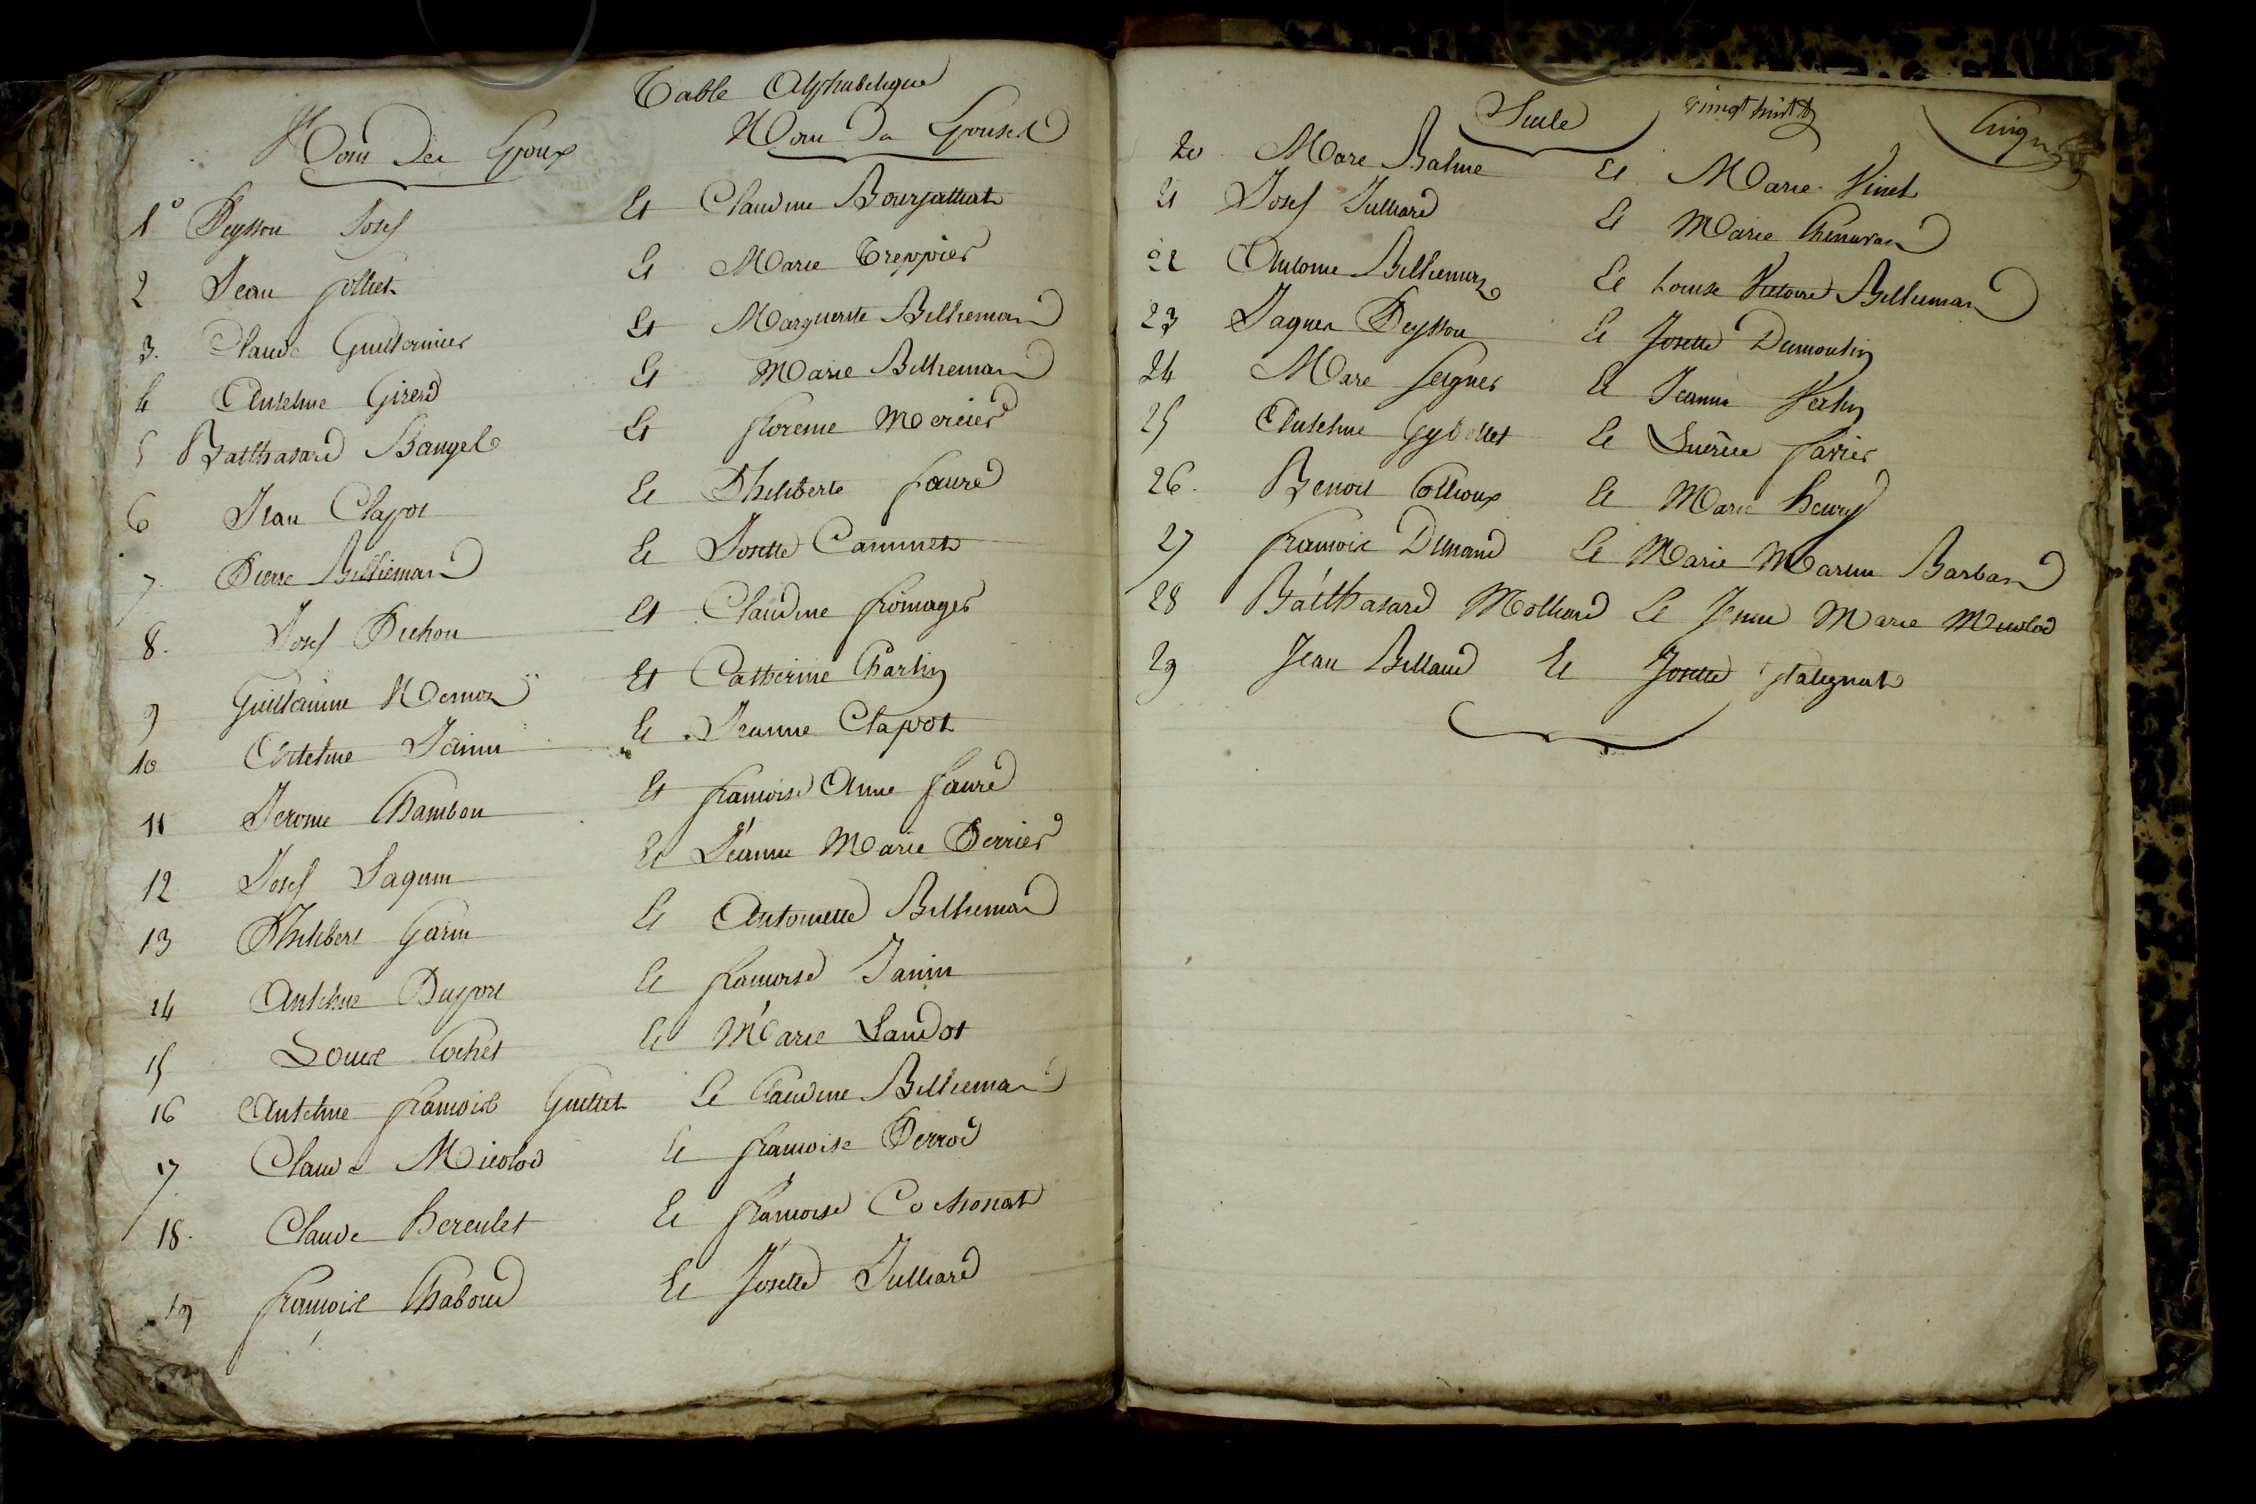 Table Alphabetique
Nom Des Epoux Nom Da Epouses
1° Peysson Josef Et Claudine Bourjaillat
2 Jean jolliet Et Marie Treppier
3. Claude Guillerminer Et Marguerite Billiemard
4 Antelme Girerd Et Marie Billiemard
5 Balthasard Et florence Mercier
6 Jean Clapot Et Philiberte faure
7. Pierre Billiemard Et Josette
8. Josef Pichon Et Claudine fromager
9 Guillaume Mermoz Et Catherine Charlin
10 Antelme Janin Et Jeanne Clapot
11 Jerome Chambon Et francoise Anne faure
12 Josef Jaquin Et Jeanne Marie Perrier
13 Philibert Garin Et Antoinette Billiemard
14 Antelme Duport Et francoise Janin
15 Louis Cochet Et Marie
16 Antelme francois Guillet Et Claudine Billiemard
17 Claude Micolod Et francoise Perrod
18. Claude herculet Et francoise Cochonat
19 francois Chaboud Et Josette Julliard
Suite vingt huit Cinq
20 Marc Balme Et Marie Vinet
21 Josef Julliard Et Marie
22 Antoine Billiemaz Et Louise Victoire Billiemard
23 Jaques Peysson Et Josette Dumoulin
24 Marc Seigner Et Jeanne
25 Antelme Et Lucrèce favier
26. Benoit Collioux Et Marie henry
27 francois Dunand Et Marie Martin Barban
28 Balthasard Molliard Et Jeanne Marie Micolod
29 Jean Billaud Et Josette